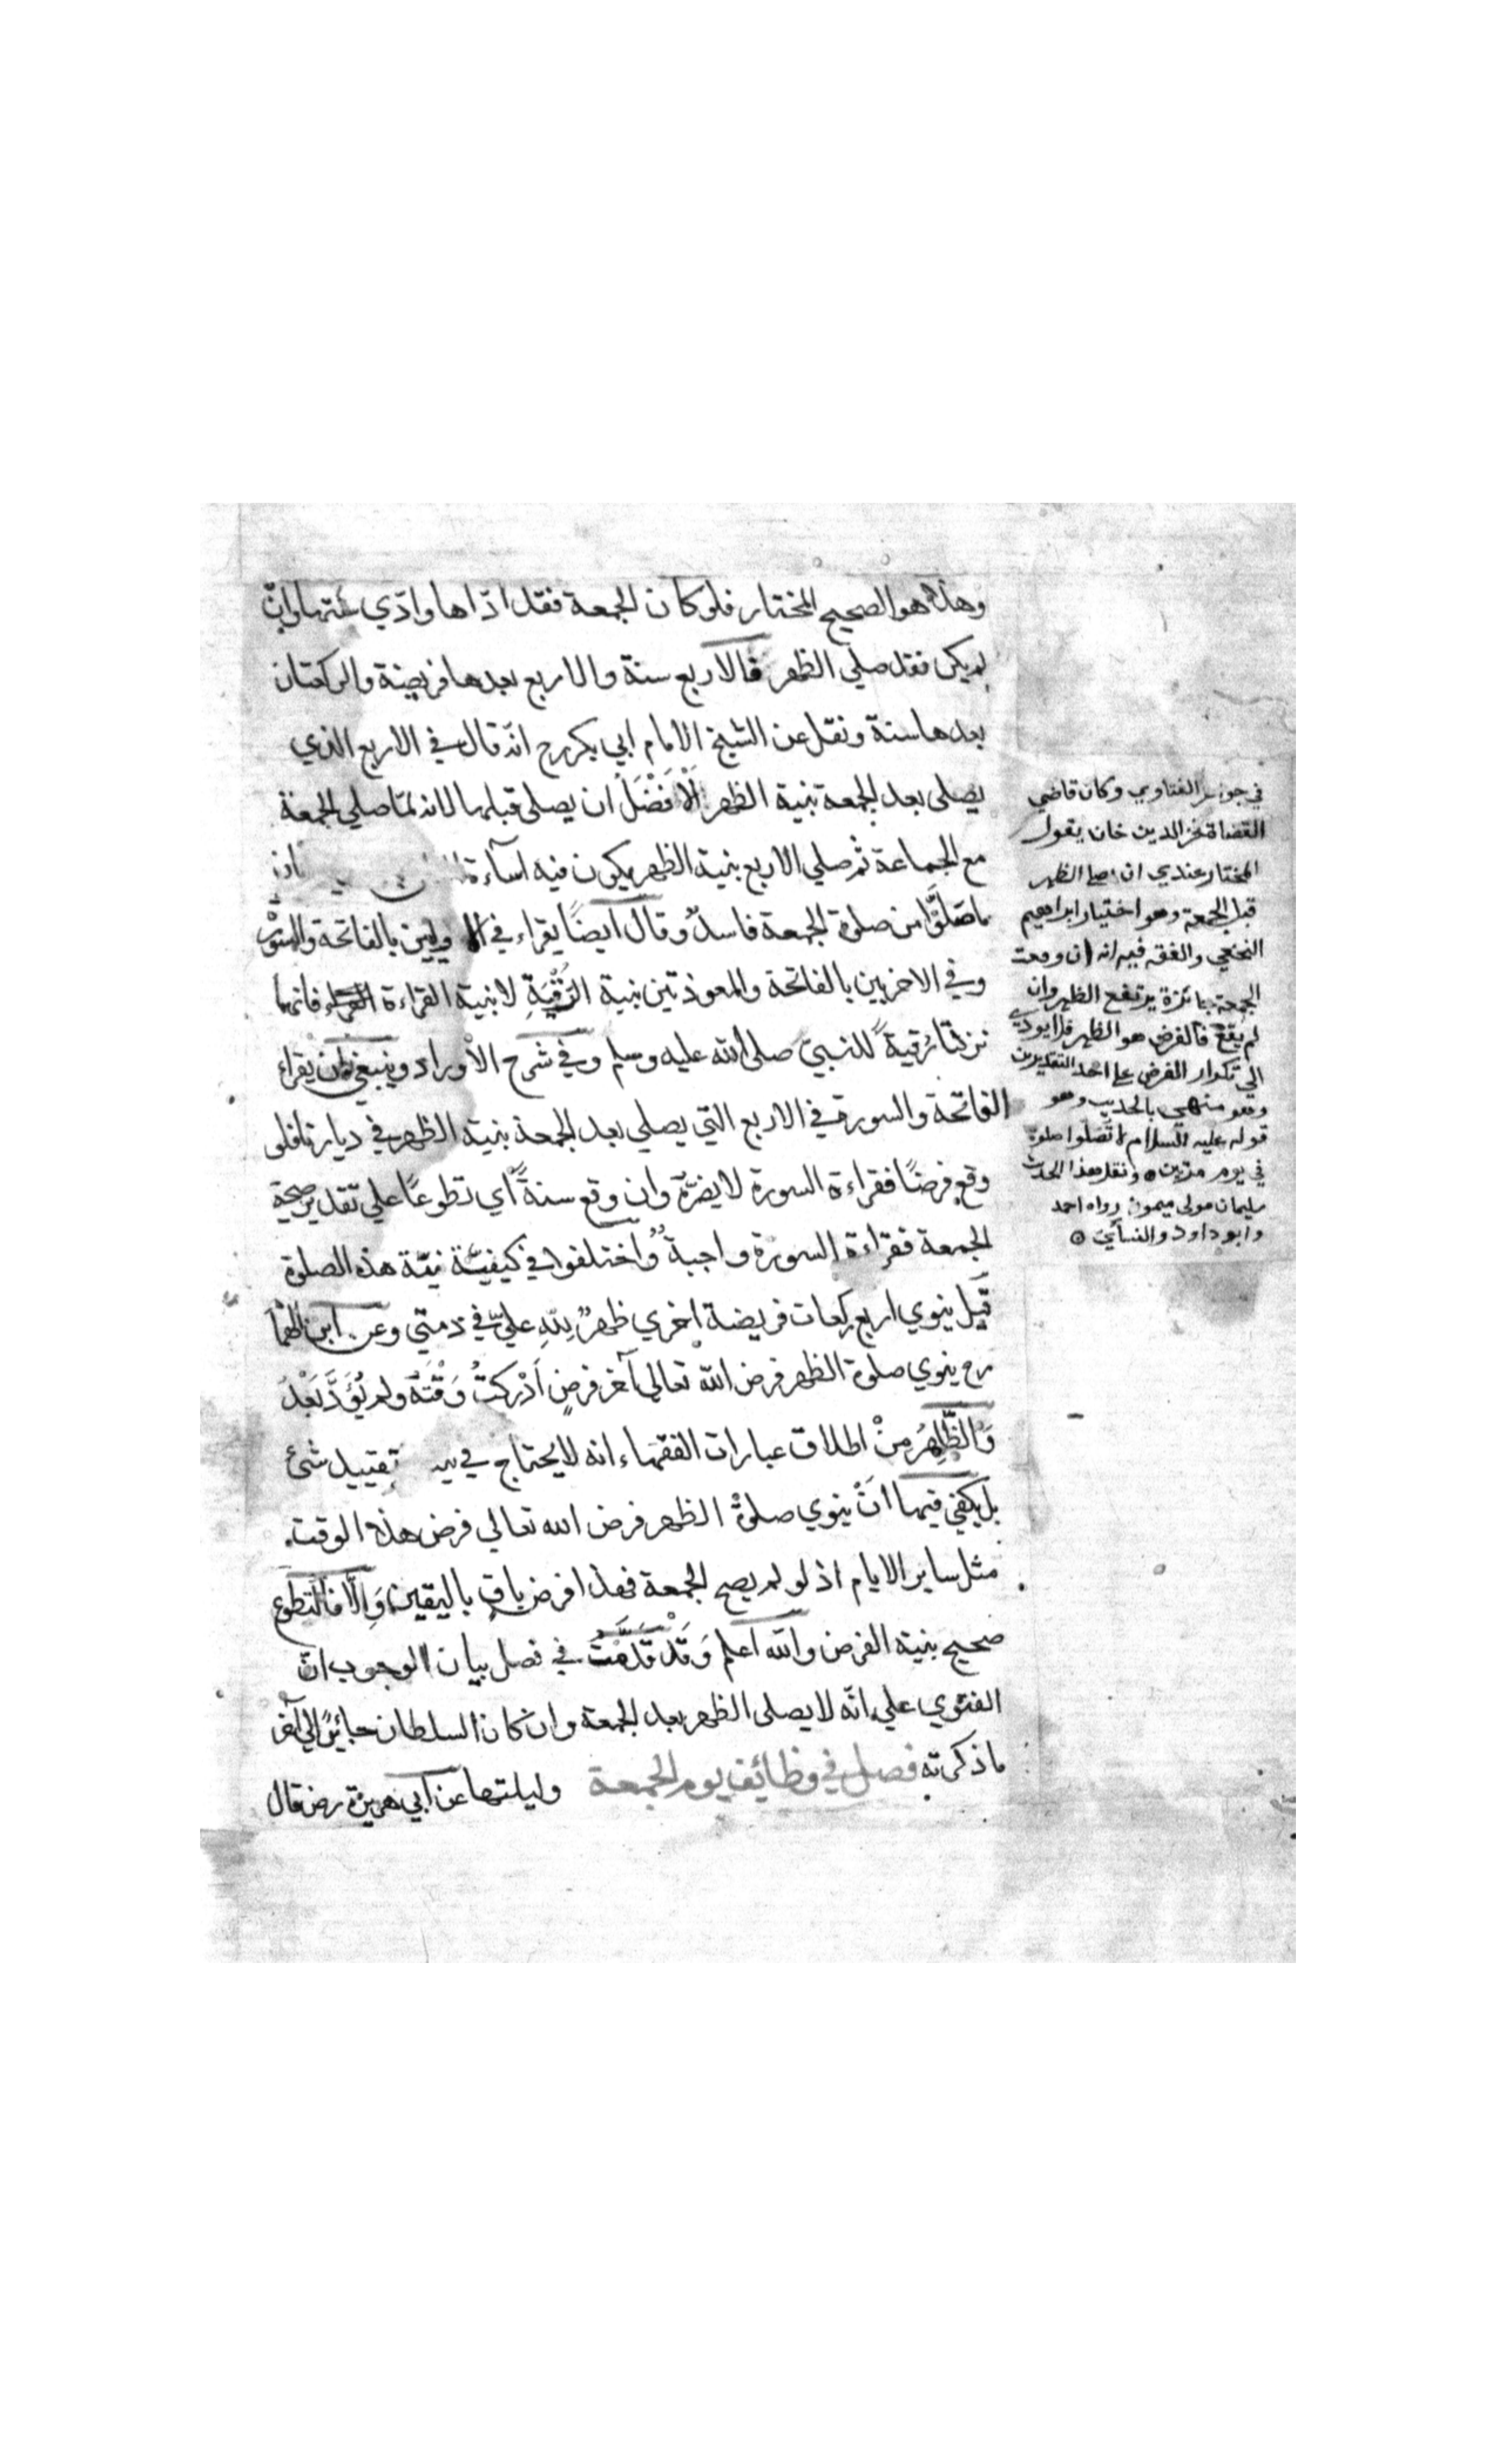 وهذا هو الصحيح المختار فلو كان الجمعة فقد ادّاها وادّي سُنّتها وان
لم يكن فقد صلي الظهر فالاربع سنة والاربع بعدها فريضة والركعتان
بعدها سنة ونقل عن الشيخ الامام ابي بكر رح انّه قال في الاربع الذي
يصلى بعد الجمعة بنية الظهر الْاَفْضَلُ ان يصلى قبلها لانه لمّا صلي الجمعة
مع الجماعة ثم صلي الاربع بنية الظهر يكون فيه اساءة
ما صَلَّوْا من صلوة الجمعة فاسدٌ وقال ايضًا يقراء في الاوليين بالفاتحة والسُّوَر
وفي الاخريين بالفاتحة والمعوذتين بنية الرُّقْيَةِ لا بنية القراءة فانهما
نزلتا رُقيةً للنبيّ صلى الله عليه وسلم وفي شرح الاَوراد وينبغي ان يقراء
الفاتحة والسورة في الاربع التي يصلي بعد الجمعة بنية الظهر في ديارنا فلو
وقع فرضًا فقراءة السورة لا يضرّه وان وقع سنةً اي تطوعًا علي تقدير صحة
الجمعة فقراءة السورة واجبةٌ واختلفوا في كيفيّة نيّة هذه الصلوة
قيل ينوي اربع ركعات فريضة اخري ظهرٌ لِلّهِ عليَّ في ذمتي وعن ابن الهمام
رح ينوي صلوة الظهر فرض الله تعالي آخر فرضٍ اَدْركتُ وَقْتَهُ ولم يُؤَدَّ بَعْدُ
وَالظَّاهِرُ مِنْ اطلاق عبارات الفقهاء انه لا يحتاج في تقييد شئ
بل يكفي فيها اَنْ ينوي صلوةَ الظهر فرض الله تعالي فرض هذا الوقت
مثل ساير الايام اذ لو لم يصح الجمعة فهذا فرض باقٍ باليقين وَاِلَّا فالتطوع
صحيح بنية الفرض والله اعلم وَقَدْ قَدَّمْتُ في فصل بيان الوجوب انّ
الفتوي علي انّه لا يصلى الظهر بعد الجمعة وان كان السلطان جايرًا الي آخر
ما ذكرته فصل في وظائف يوم الجمعة وليلتها عن ابي هريرة رض قال
في جواهر الفتاوي وكان قاضي
القضاة فخر الدين خان يقول
المختار عندي ان صلي الظهر
قبل الجمعة وهو اختيار ابراهيم
النخعي والفقه فيه انه ان وقعت
الجمعة جائزة يرتفع الظهر وان
لم يقع فالفرض هو الظهر فلا يودي
الي تكرار الفرض علي احد التقديرين
وهو منهي بالحديث وهو
قوله عليه السلام لا تصلوا صلوة
في يوم مرتين ونقل هذا الحديث
سليمان مولى ميمونة رواه احمد
وابو داود والنسائي